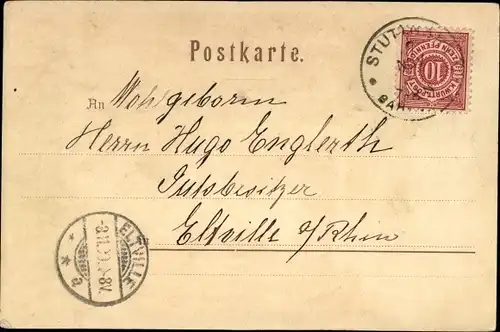 Postkarte.
An Wohlgeborn
Herrn Hugo Englerth
Gutsbesitzer
Eltville a/Rhein
STUTT
10
ELTVILLE
a